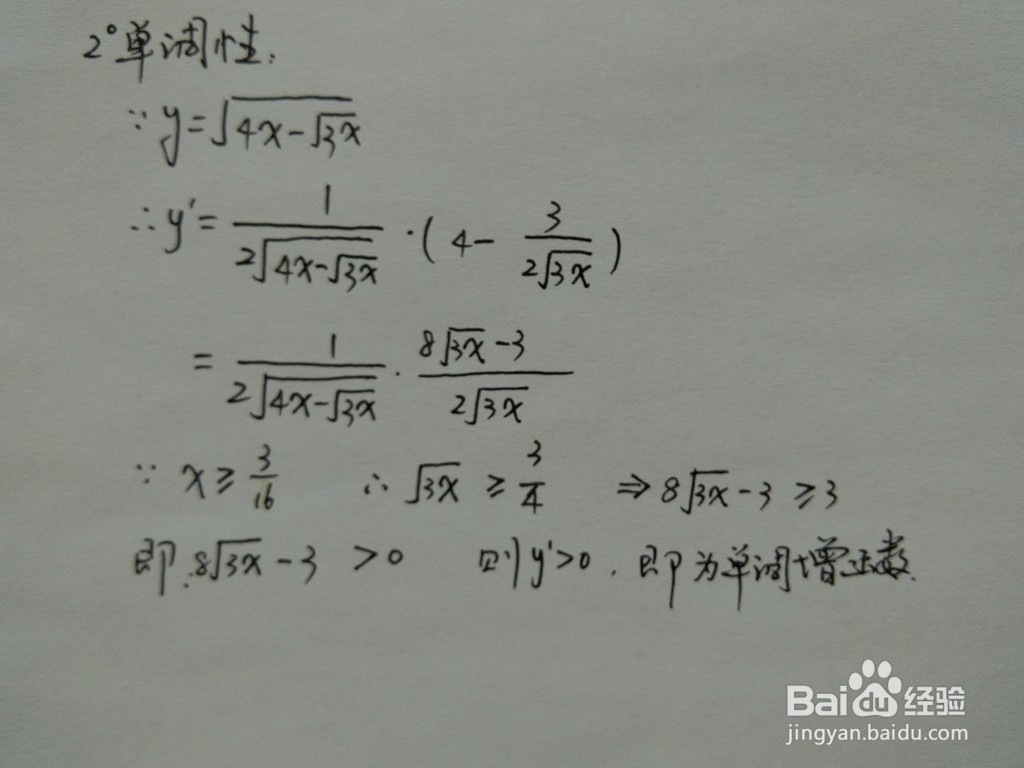 2° 单调性:
∵ y=√(4x-√(3x))
∴ y'= 1/(2√(4x-√(3x))) · (4 - 3/(2√(3x)))
= 1/(2√(4x-√(3x))) · (8√(3x)-3)/(2√(3x))
∵ x≥3/16 ∴ √(3x) ≥ 3/4 ⇒ 8√(3x)-3 ≥3
即: 8√(3x)-3 >0 则y'>0, 即为单调增函数.
Bai du 经验
jingyan.baidu.com